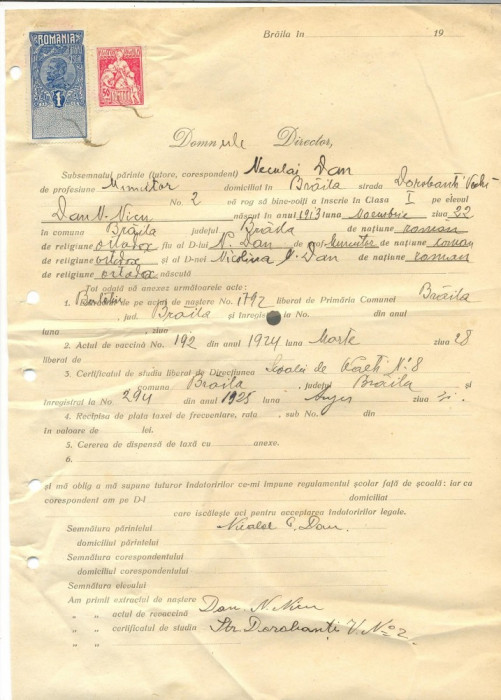 Brăila în 19
ROMÂNIA
1
50
Domnule Director,
Subsemnatul părinte (tutore, corespondent) Neculai Dan
de profesiune Muncitor domiciliat în Brăila strada Dorobanti Vechi
No. 2 vă rog să bine-voiți a înscrie în Clasa I pe elevul
Dan N. Nicu născut în anul 1913 luna Noembrie ziua 22
în comuna Brăila județul Brăila de națiune roman
de religiune ortodox fiu al D-lui N. Dan de Muncitor de națiune roman
de religiune ortodox și al D-nei Nicolina N. Dan de națiune roman
de religiune ortodox născută
Tot odată vă anexez următoarele acte:
1. de pe actul de naștere No. 1792 liberat de Primăria Comunei Brăila
, jud. Brăila și înregistrat la No. din anul
luna , ziua
2. Actul de vaccină No. 192 din anul 1924 luna Marte ziua 28
liberat de
3. Certificatul de studiu liberat de Direcțiunea Școalei de No. 8
comuna Brăila , județul Brăila și
înregistrat la No. 294 din anul 1925 luna ziua
4. Recipisa de plata taxei de frecventare, rata , sub No. din
în valoare de lei.
5. Cererea de dispensă de taxă cu anexe.
6.
și mă oblig a mă supune tuturor îndatoririlor ce-mi impune regulamentul școlar față de școală: iar ca
corespondent am pe D-l domiciliat
care iscălește aci pentru acceptarea îndatoririlor legale.
Semnătura părintelui Dan
domiciliul părintelui
Semnătura corespondentului
domiciliul corespondentului
Semnătura elevului
Am primit extractul de naștere Dan N. Nicu
" " actul de revaccină
" " certificatul de studiu Str Dorobanți V. No 2
" "